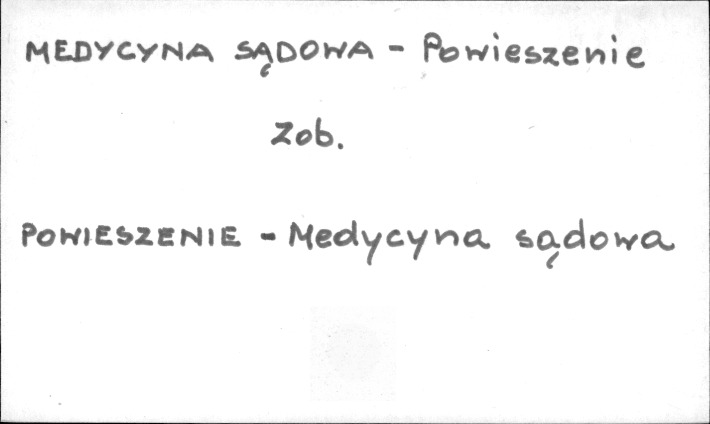 MEDYCYNA SĄDOWA - Powieszenie
Zob.
POWIESZENIE - Medycyna sądowa